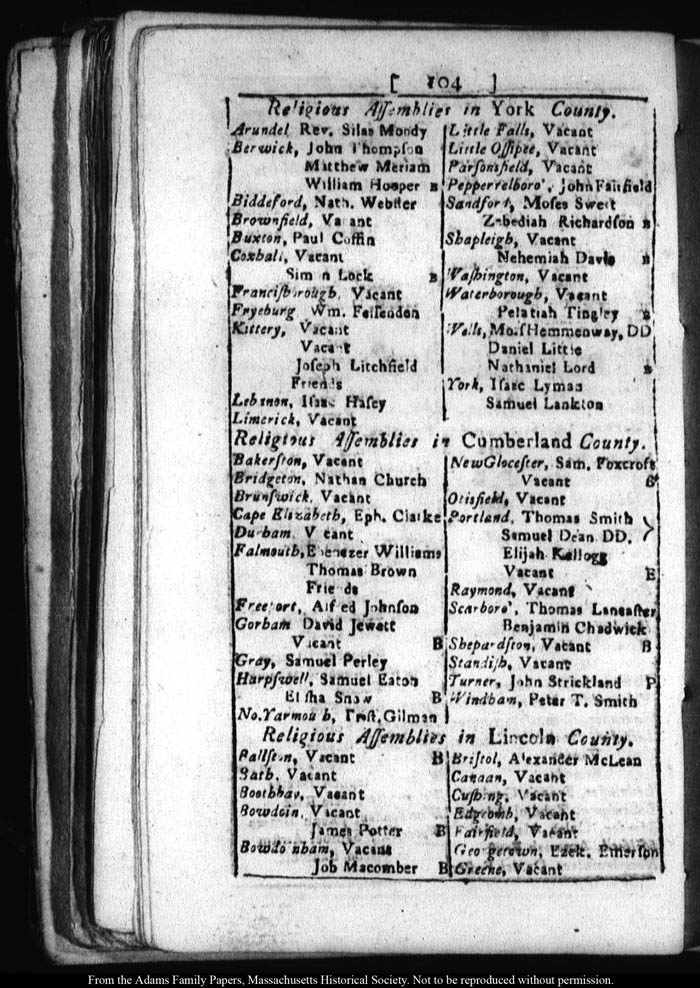 [ 104 ]
Religious Aſſemblies in York County.
Arundel Rev. Silas Moody
Berwick, John Thompſon
Matthew Meriam
William Hooper B
Biddeford, Nath. Webſter
Brownfield, Va ant
Buxton, Paul Coffin
Coxhall, Vacant
Sim n Lock B
Franciſborough, Vacant
Fryeburg Wm. Feſſenden
Kittery, Vacant
Vacant
Joſeph Litchfield
Friends
Lebanon, Iſaac Haſey
Limerick, Vacant
Little Falls, Vacant
Little Oſſipee, Vacant
Parſonsfield, Vacant
Pepperrelboro', John Fairfield
Sandford, Moſes Sweet
Zebediah Richardſon B
Shapleigh, Vacant
Nehemiah Davis B
Waſhington, Vacant
Waterborough, Vacant
Pelatiah Tingley B
Wells, Moſ Hemmenway, DD
Daniel Little
Nathaniel Lord B
York, Iſaac Lyman
Samuel Lankton
Religious Aſſemblies in Cumberland County.
Bakerſton, Vacant
Bridgeton, Nathan Church
Brunſwick, Vacant
Cape Elizabeth, Eph. Clarke
Durham, V cant
Falmouth, Ebenezer Williams
Thomas Brown
Frie ds
Freeport, Alf ed Johnſon
Gorham David Jewett
Vacant B
Gray, Samuel Perley
Harpſwell, Samuel Eaton
Eliſha Snow B
No. Yarmou h, Triſt. Gilman
New Gloceſter, Sam. Foxcroft
Vacant B
Otisfield, Vacant
Portland, Thomas Smith
Samuel Dean DD.
Elijah Kellogg
Vacant E
Raymond, Vacant
Scarboro', Thomas Lancaſter
Benjamin Chadwick
Shepardſton, Vacant B
Standiſh, Vacant
Turner, John Strickland P
Windham, Peter T. Smith
Religious Aſſemblies in Lincoln County.
Ballſton, Vacant B
Bath, Vacant
Boothbay, Vacant
Bowdoin, Vacant
James Potter B
Bowdo nham, Vacant
Job Macomber B
Briſtol, Alexander McLean
Canaan, Vacant
Cuſhing, Vacant
Edgcomb, Vacant
Fairfield, Vacant
Georgetown, Ezek. Emerſon
Greene, Vacant
From the Adams Family Papers, Massachusetts Historical Society. Not to be reproduced without permission.